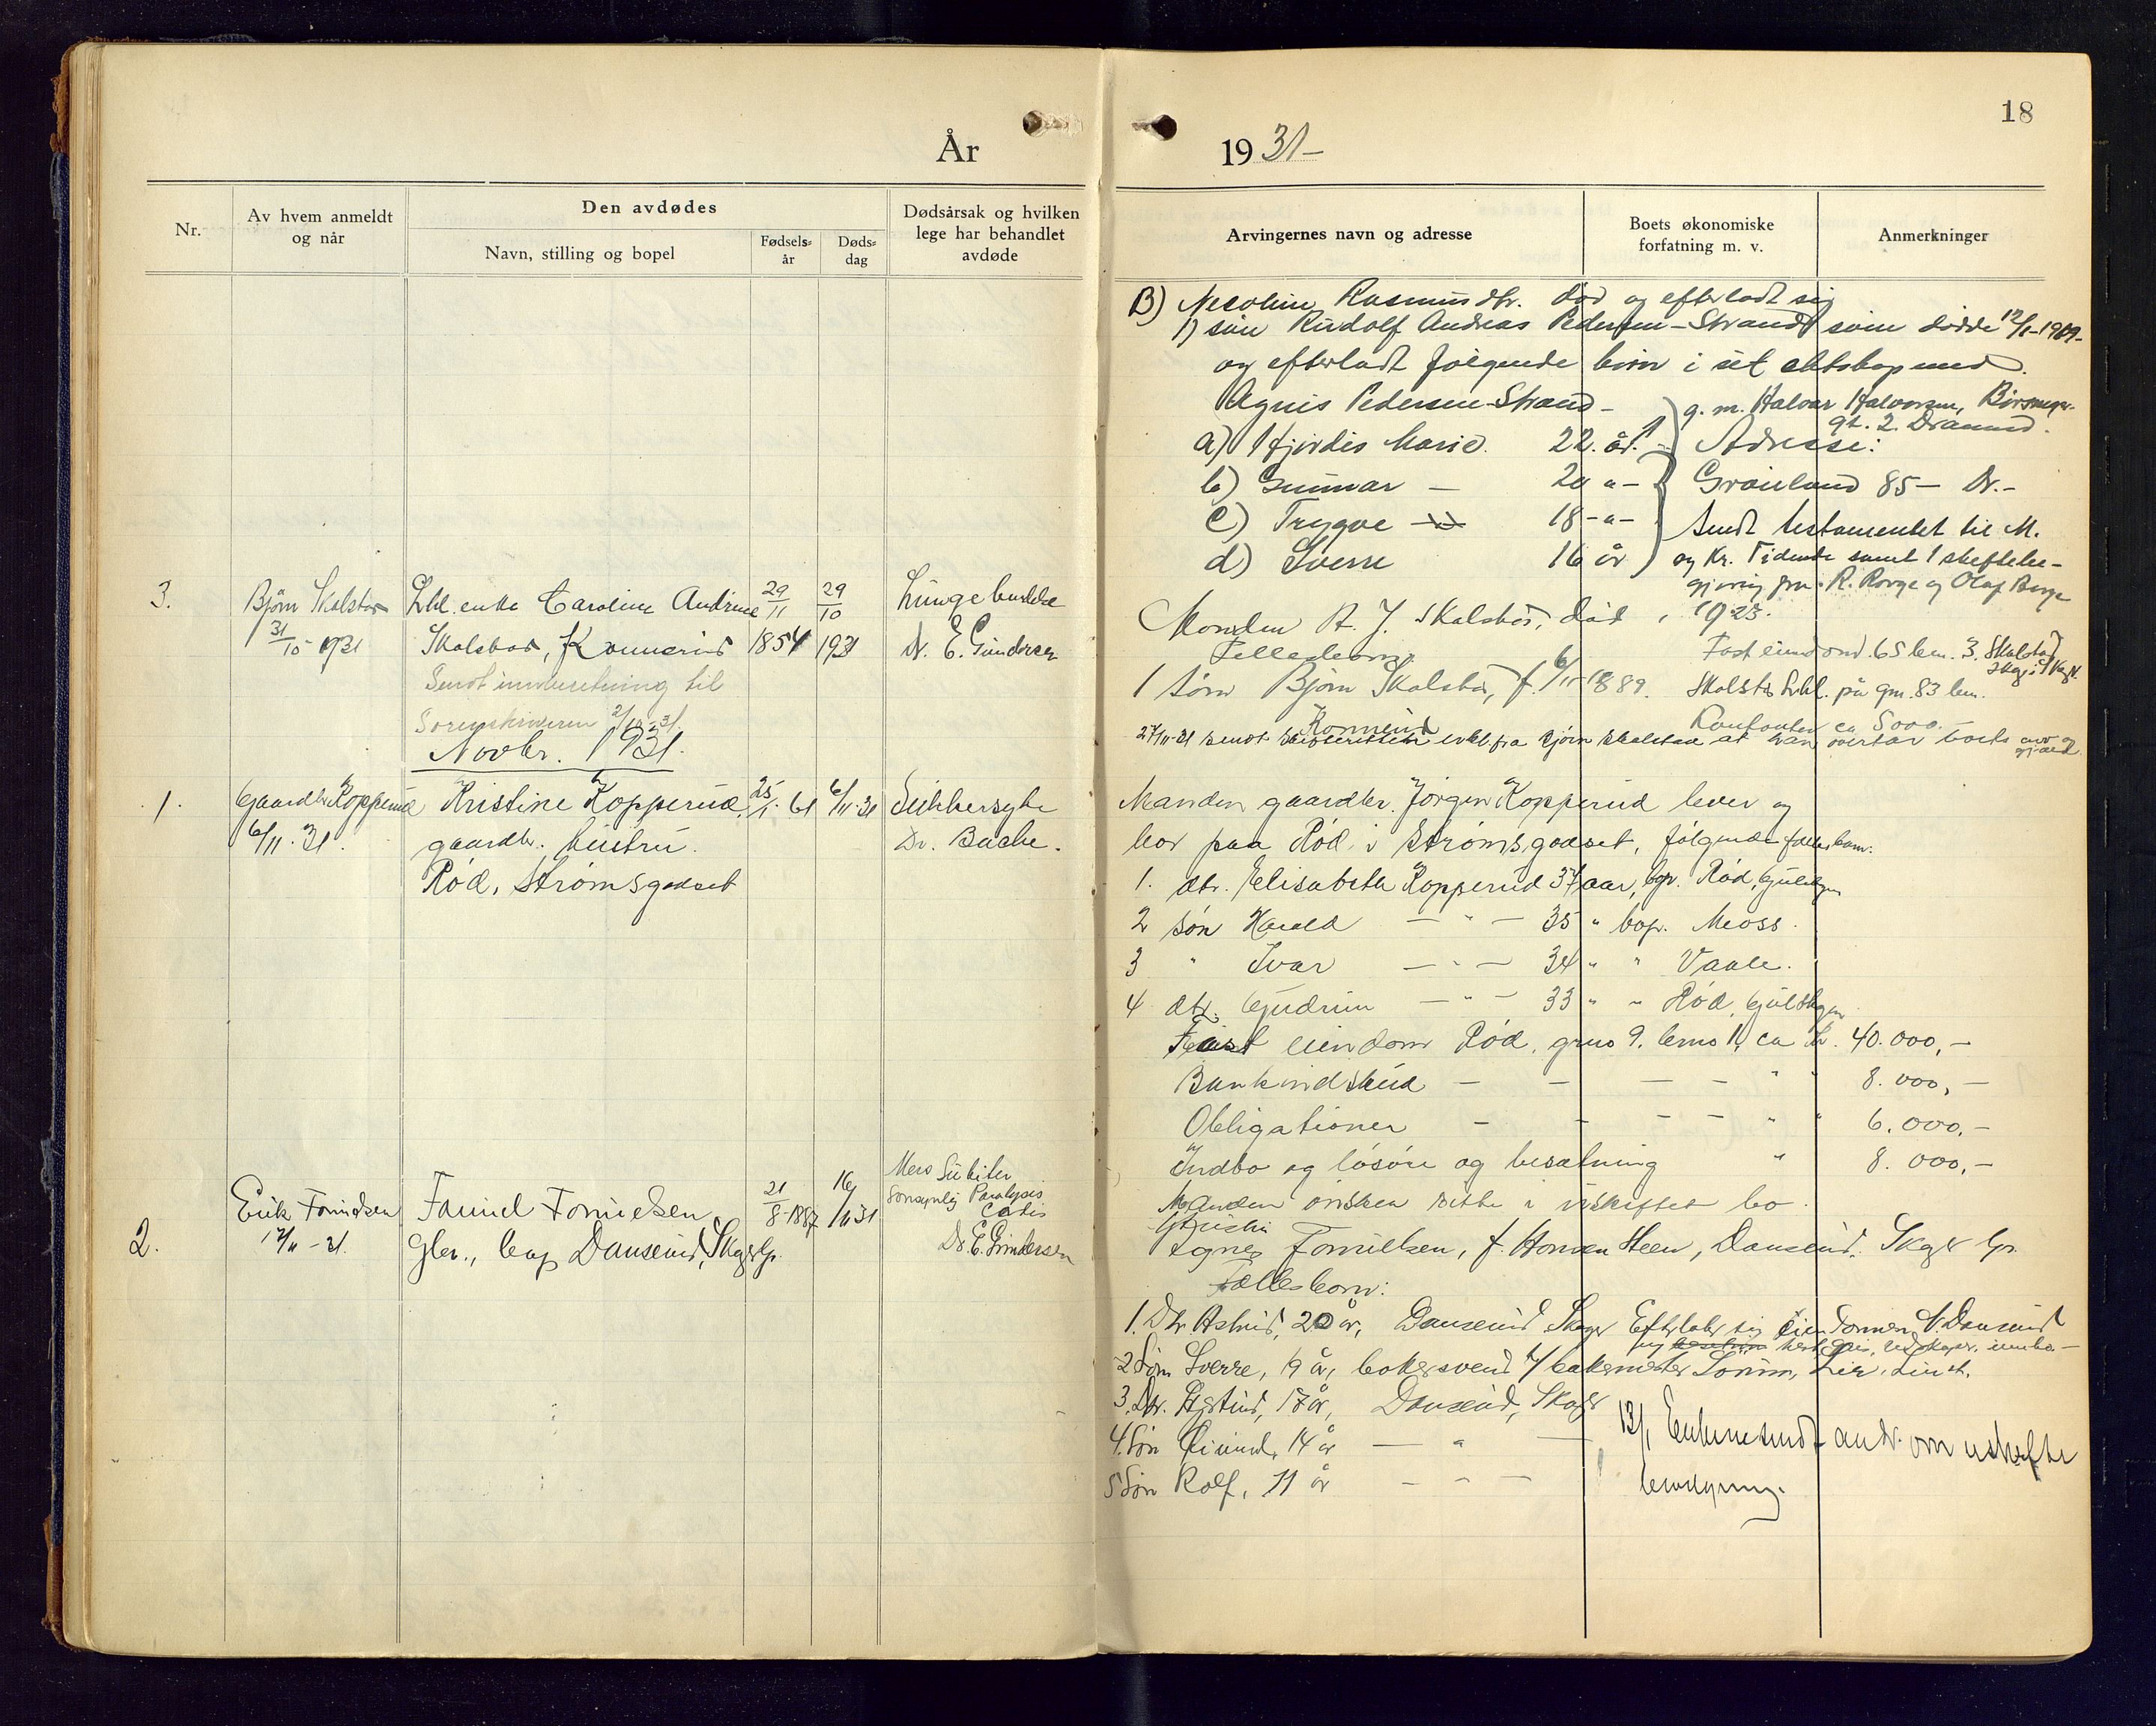 18
År 1931-
Nr.
Av hvem anmeldt og når
Den avdødes
Navn, stilling og bopel
Fødsels-år
Døds-dag
Dødsårsak og hvilken lege har behandlet avdøde
Arvingernes navn og adresse
Boets økonomiske forfatning m. v.
Anmerkninger
B) Rasmusdtr. død og efterlot sig
1) søn Rudolf Andreas Pedersen-Strand som døde 12/1-1909-
og efterlodt følgende barn i sit ektskap med
Agnes Pedersen-Strand -
g. m. Halvar Halvorsen,
gt. 2. Drammd.
a) Hjørdis Marie. 22. år. Adresse:
b) Gunnar - 20 " - Grønland 85 - Dr.-
c) Trygve 18 - " - Sendt testamentet til M.
d) Sverre 16 år og Kr. Tidende samt 1
fra R. Borge og Olaf Borge
3.
Bjørn Skalstad
31/10-1931
enke Caroline Andrine
Skalstad, Konnerud
29/11 1854
29/10 1931
Lungebetendelse
Dr. E. Gundersen
Sendt innberetning til
Sorenskriveren 2/10-31.
Manden A. J. Skalstad, død i 1923.
Fellesbarn:
1 sønn Bjørn Skalstad, f. 6/11-1889.
Konnerud
Fast eiendom. 65 bnr. 3. Skalstad
Skalstad på gnr. 83 bnr.
Kontanter ca 5000.-
27/11-31 sendt fra Bjørn Skalstad at han overtar boets arv og gjæld
Novbr. 1931.
1.
Gaardbr. Kopperud
6/11.31.
Kristine Kopperud,
gaardbr. hustru.
Rød, Strømsgodset
25/1-61
6/11-31
Sukkersyke
Dr. Bache.
Manden gaardbr. Jørgen Kopperud lever og
bor paa Rød i Strømsgodset, følgende fællesbarn:
1. dtr. Elisabeth Kopperud 37 aar, bop. Rød, Gulskogen
2 søn Harald - " - 35 " bop. Moss.
3 " Ivar - " - 34 " " Vaale.
4 dtr. Gudrun - " - 33 " " Rød, Gulskogen
Fast eiendom Rød, grno 9. brno 1, ca kr. 40.000,-
Bankindskud - - - - " " 8.000,-
Obligationer - - - - " " 6.000,-
Indbo og løsøre og besætning " 8.000,-
Manden ønsker sitte i uskiftet bo.
2.
Erik Tomidsen
17/11-31.
Gbr., bop Dansrud, Skoger
21/8-1887
16/11 31
Mors Subita
sansynlig Paralysis Cordis
Dr. E. Gundersen
Agnes f. Hansen Steen, Dansrud, Skoger
Fællesbarn:
1. Dtr. Astrid, 20 år, Dansrud Skoger
Efterlater sig
2 Søn Sverre, 19 år, bakersvend h/ bakermester Sørum, Lier.
3. Dtr. 17 år, Dansrud, Skoger
4. Søn 14 år - " -
5 Søn Rolf, 11 år - " -
13/1 Enken sendt andr. om uskifte
bevilgning.